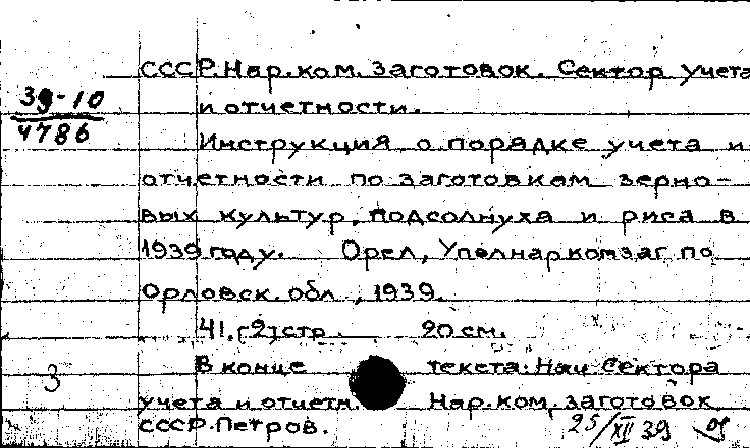 СССР. Нар. ком. заготовок. Сектор учета
39-10
4786
и отчетности.
Инструкция о порядке учета и
отчетности по заготовкам зерно-
вых культур, подсолнуха и риса в
1939 году. Орел, Уполнаркомзаг по
Орловск. обл., 1939.
41, [2] стр. 20 см.
В конце текста: Нач. Сектора
3
учета и отчетн. Нар. ком. заготовок
СССР. Петров.
25/XII 39